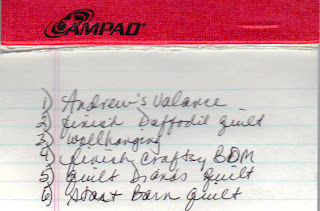 AMPAD
1) Andrew's valance
2) finish Daffodil quilt
3) wallhanging
4) finish Craftsy BOM
5) quilt Diana's quilt
6) Start Barn quilt